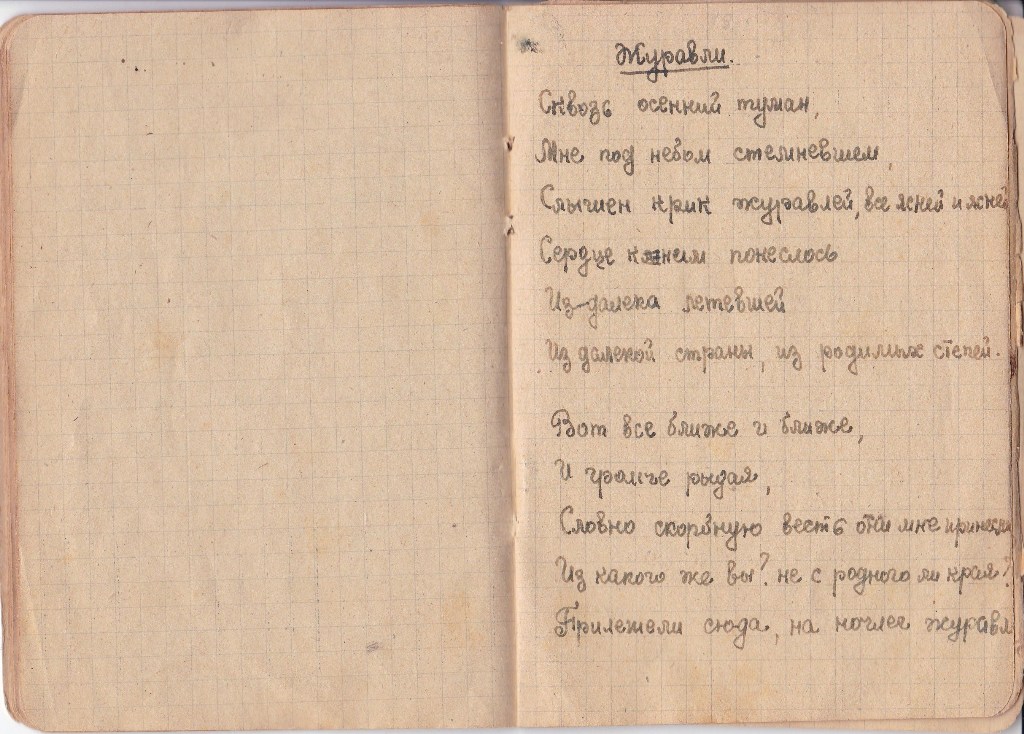 Журавли.
Сквозь осенний туман,
Мне под небом стемневшем,
Слышен крик журавлей, все ясней и ясней
Сердце к ним понеслось
Из-далека летевшей
Из далекой страны, из родимых степей.
Вот все ближе и ближе,
И громче рыдая,
Словно скорбную весть мне
Из какого же вы? не с родного ли края?
Прилетели сюда, на ночлег журавл